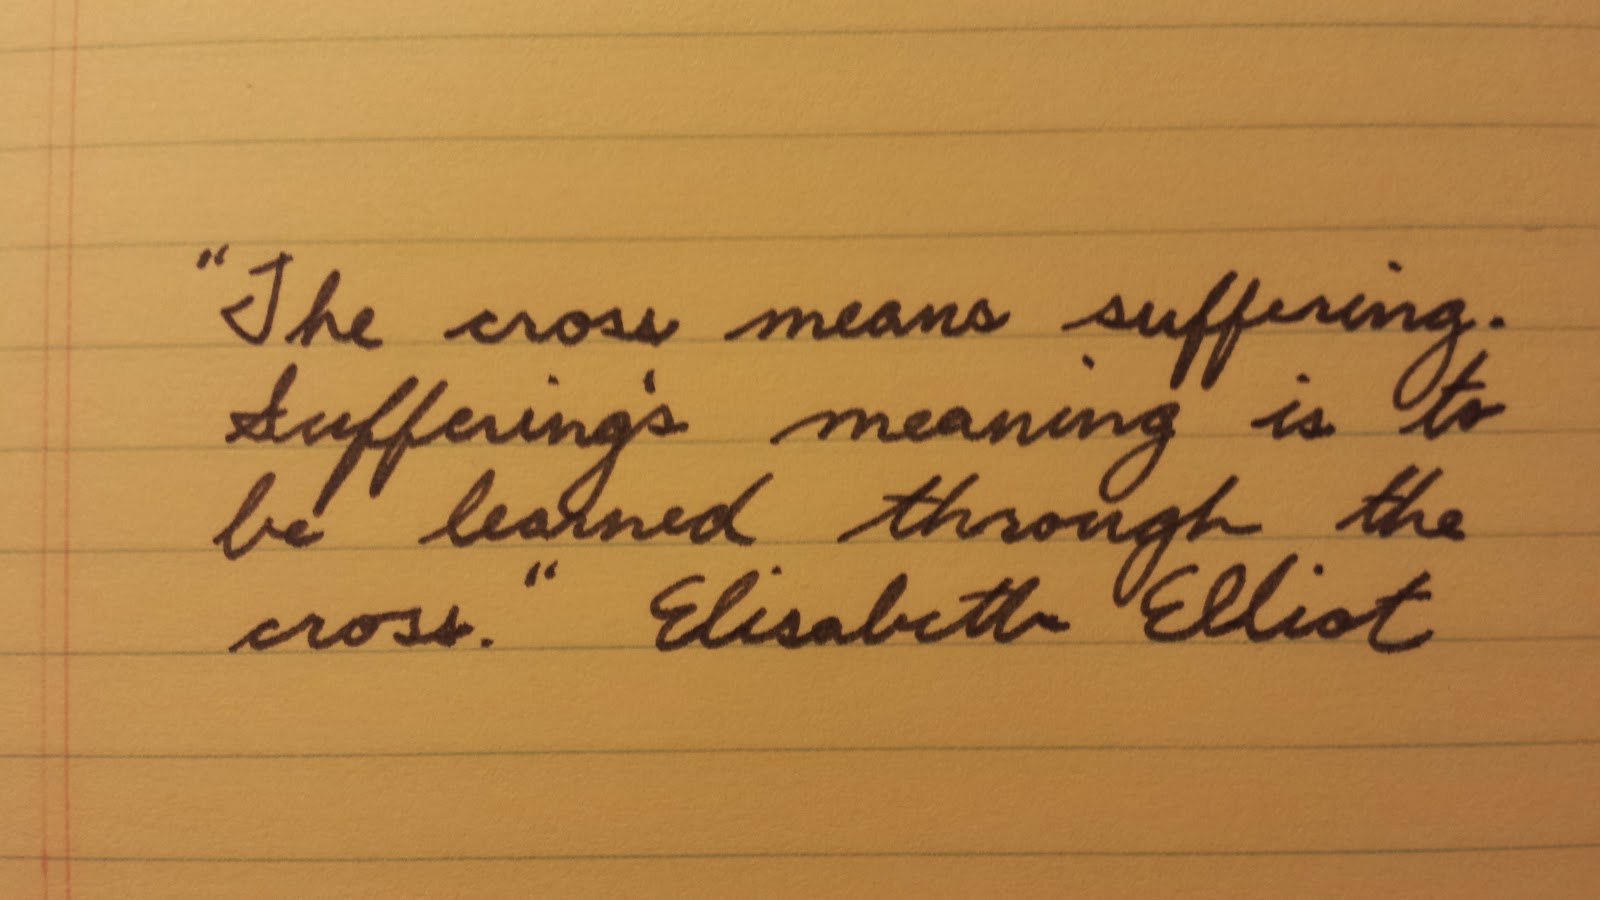 "The cross means suffering.
Suffering's meaning is to
be learned through the
cross." Elisabeth Elliot